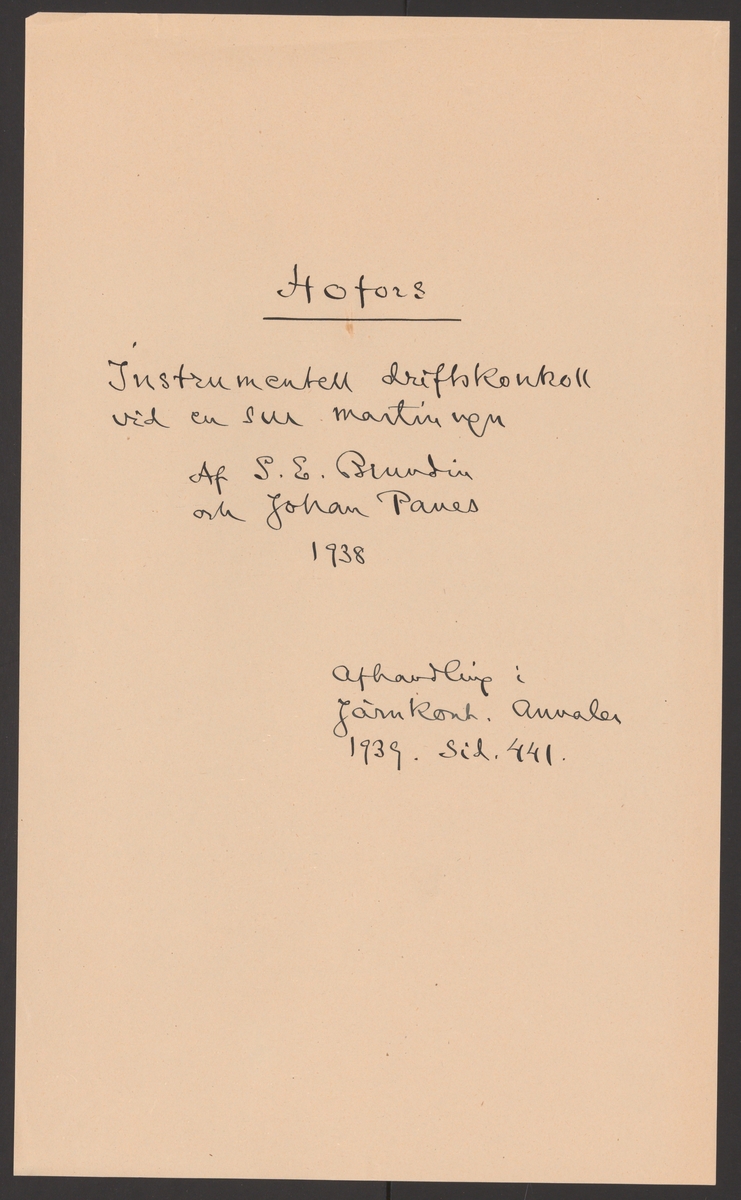 Hofors
Instrumentell driftskontroll
vid en sur martinugn
Af S. E. Brundin
och Johan Panes
1938
Afhandling i
Järnkont. Annaler
1939. Sid. 441.